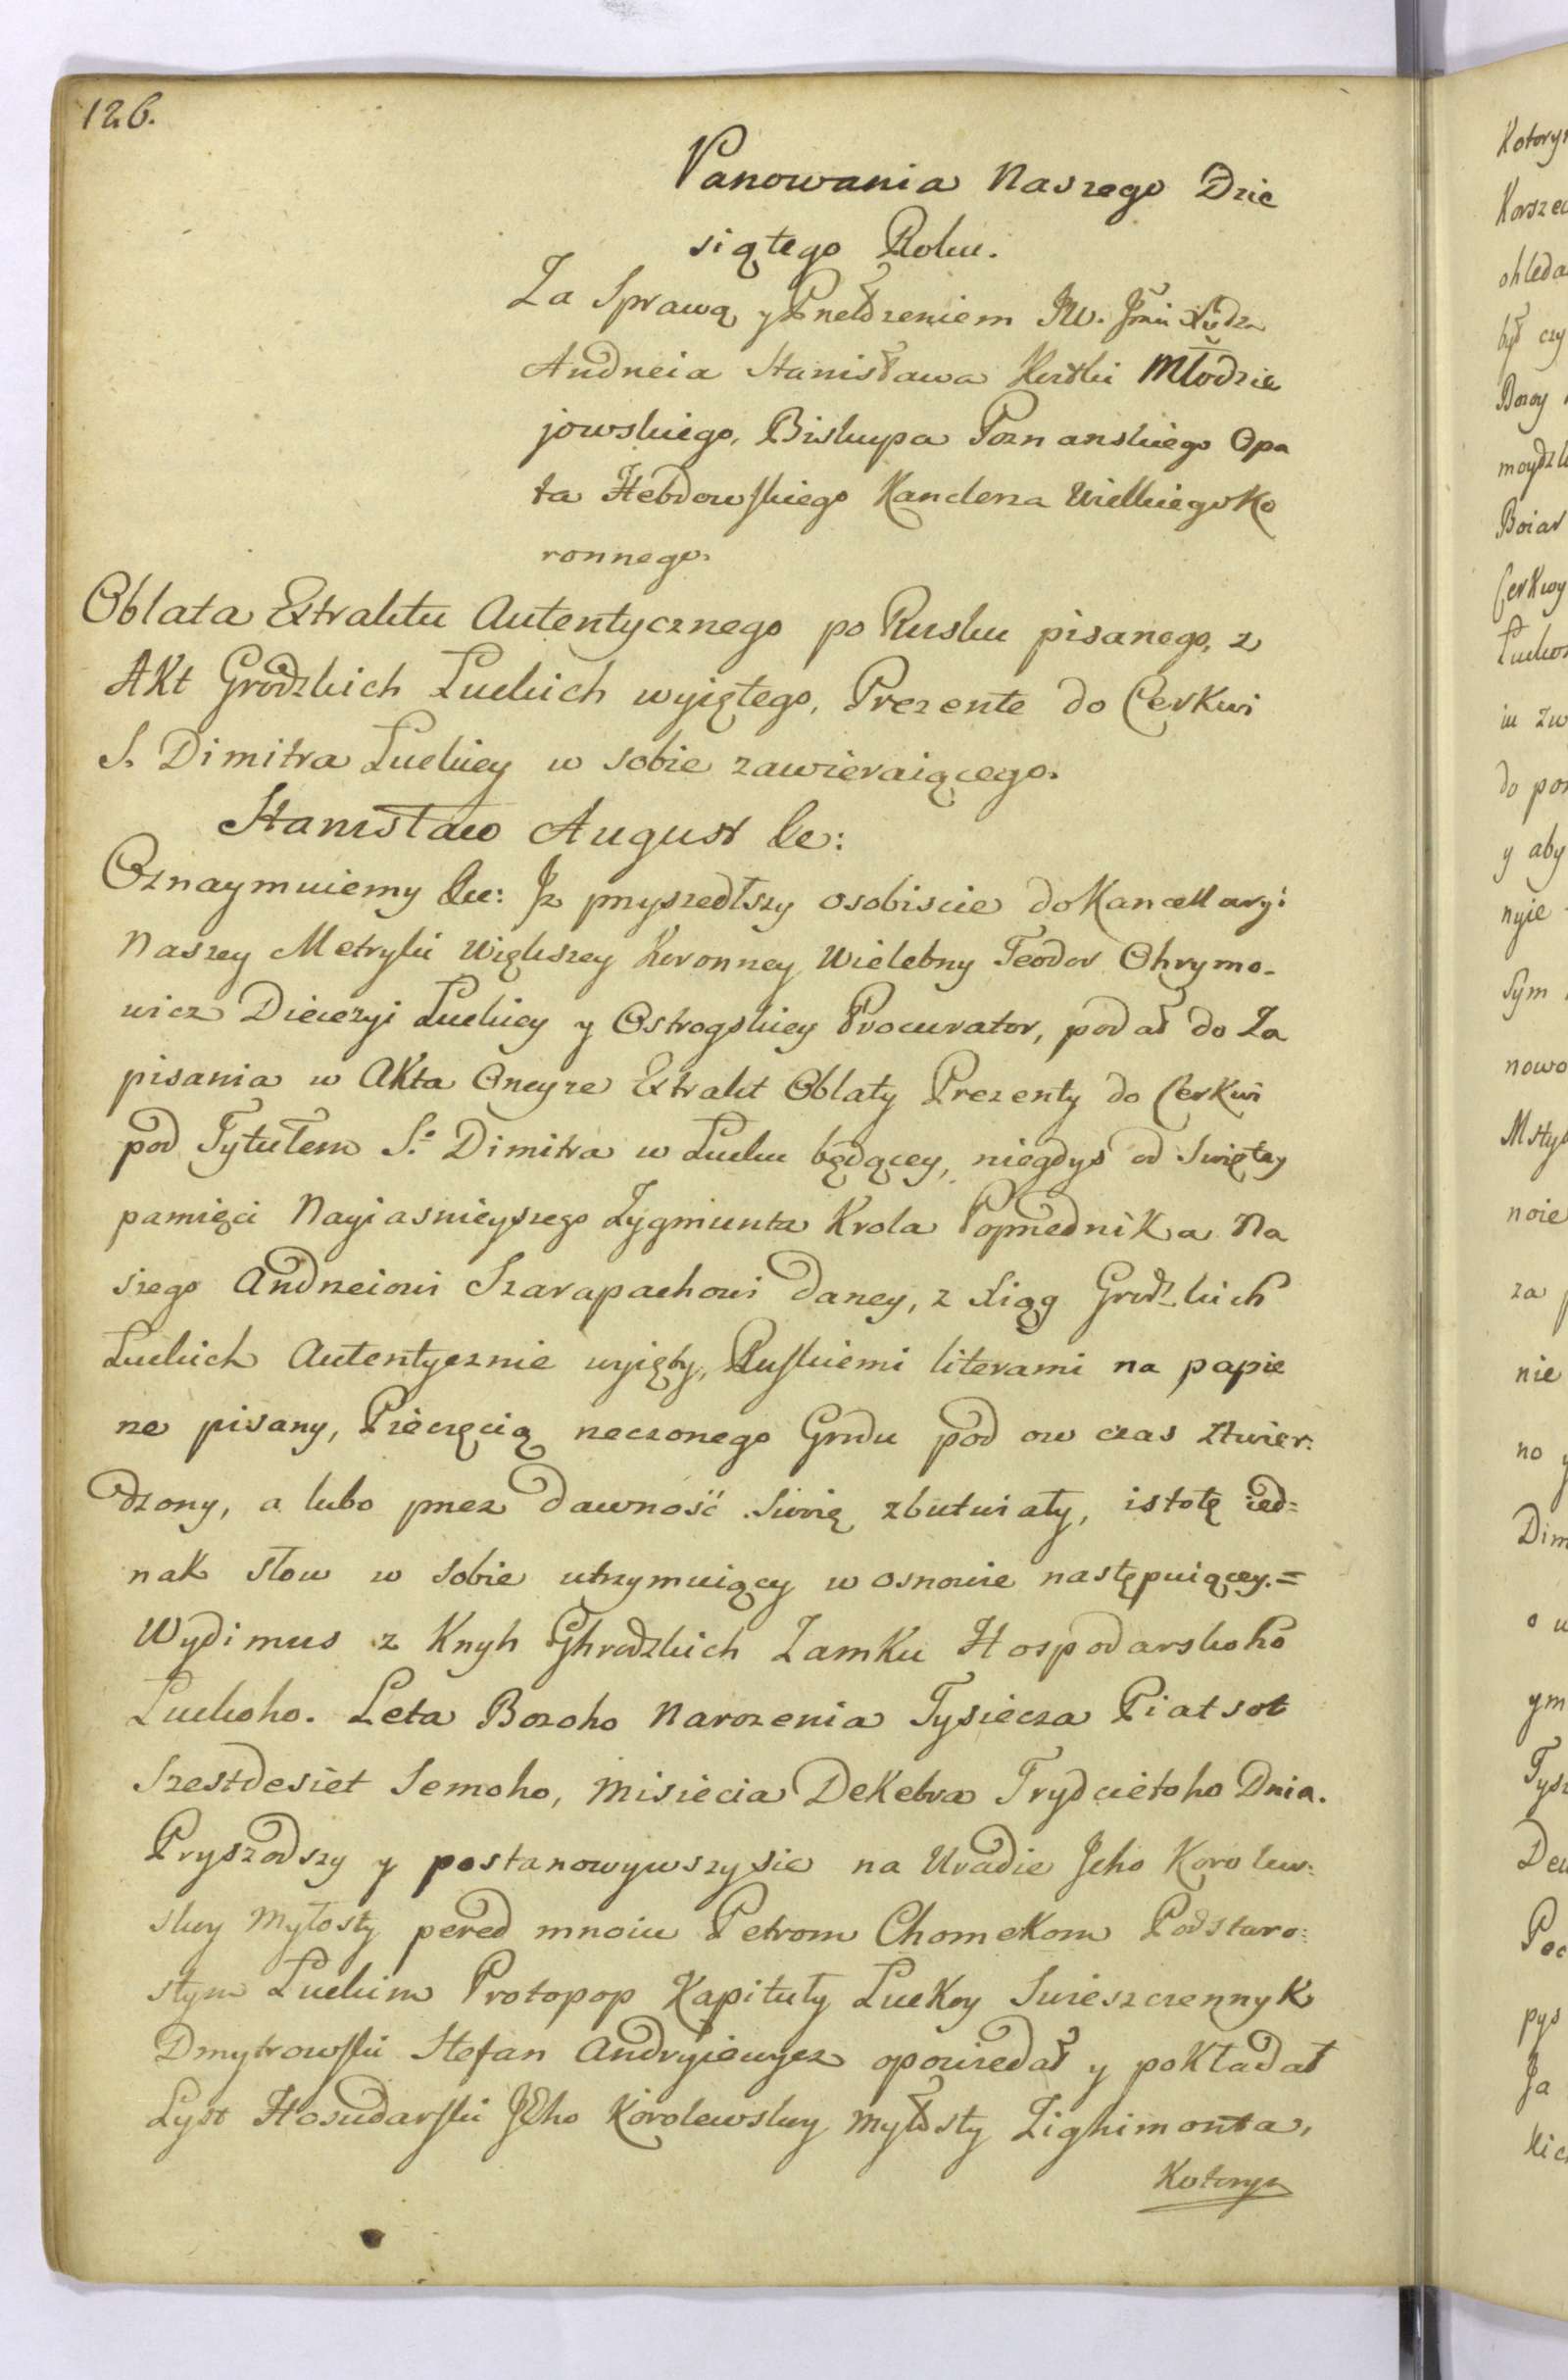 126.
Panowania Naszego Dzie
siątego Roku.
Za Sprawą y Przełożeniem JW. Jmci Xiędza
Andrzeia Stanisława Kostki Młodzie
jowskiego, Biskupa Poznanskiego Opa
ta Hebdowskiego Kanclerza Wielkiego Ko
ronnego.
Oblata Extraktu Autentycznego po Rusku pisanego, z
Akt Grodzkich Luckich wyiętego, Prezente do Cerkwi
S. Dimitra Luckiey w sobie zawieraiącego.
Stanisław August &c:
Oznaymuiemy &c: Jz przyszedłszy osobiscie do Kancellaryi
Naszey Metryki Większey Koronney Wielebny Teodor Ohrymo-
wicz Diecezyi Luckiey y Ostrogskiey Procurator, podał do Za
pisania w Akta Ninieysze Extrakt Oblaty Prezenty do Cerkwi
pod Tytułem S.o Dimitra w Lucku będącey, niegdys od Swiętey
pamięci Nayiasnieyszego Zygmunta Krola Poprzednika Na
szego Andrzeiowi Szarapachowi daney, z Xiąg Grodzkich
Luckich Autentycznie wyięty, Ruskiemi literami na papie
rze pisany, Pieczęcią rzeczonego Grodu pod ow czas ztwier:
dzony, a lubo przez dawność swoię zbutwiały, istotę ied=
nak słow w sobie utrzymuiący w osnowie następuiącey. =
Wydimus z Knyh Ghrodzkich Zamku Hospodarskoho
Luckoho. Leta Bozoho Narozenia Tysiecza Piatsot
Szestdesiet Semoho, Misiecia Dekebra Trydcietoho Dnia.
Pryszodszy y postanowywszysie na Uradie Jeho Korolew:
skoy Myłosty pered mnoiu Petrom Chomekom Podstaro:
stym Luckim Protopop Kapituły Luckoy Swieszczennyk
Dmytrowski Stefan Andryiewycz opowiedał y pokładał
Lyst Hosudarski JEho Korolewskoy Myłosty Zighimonta,
Kotoryz